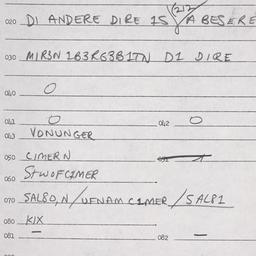 (212)
020 DI ANDERE DIRE 15 / A BESERE
030 MIRSN 1B3RG3B1TN D1 DIRE
040 O
041 O 042 O
043 VONUNGER
050 CIMERN
060 STWOFCIMER
070 SAL80,N/UFNAM CIMER/SAL81
080 KIX
081 – 082 –